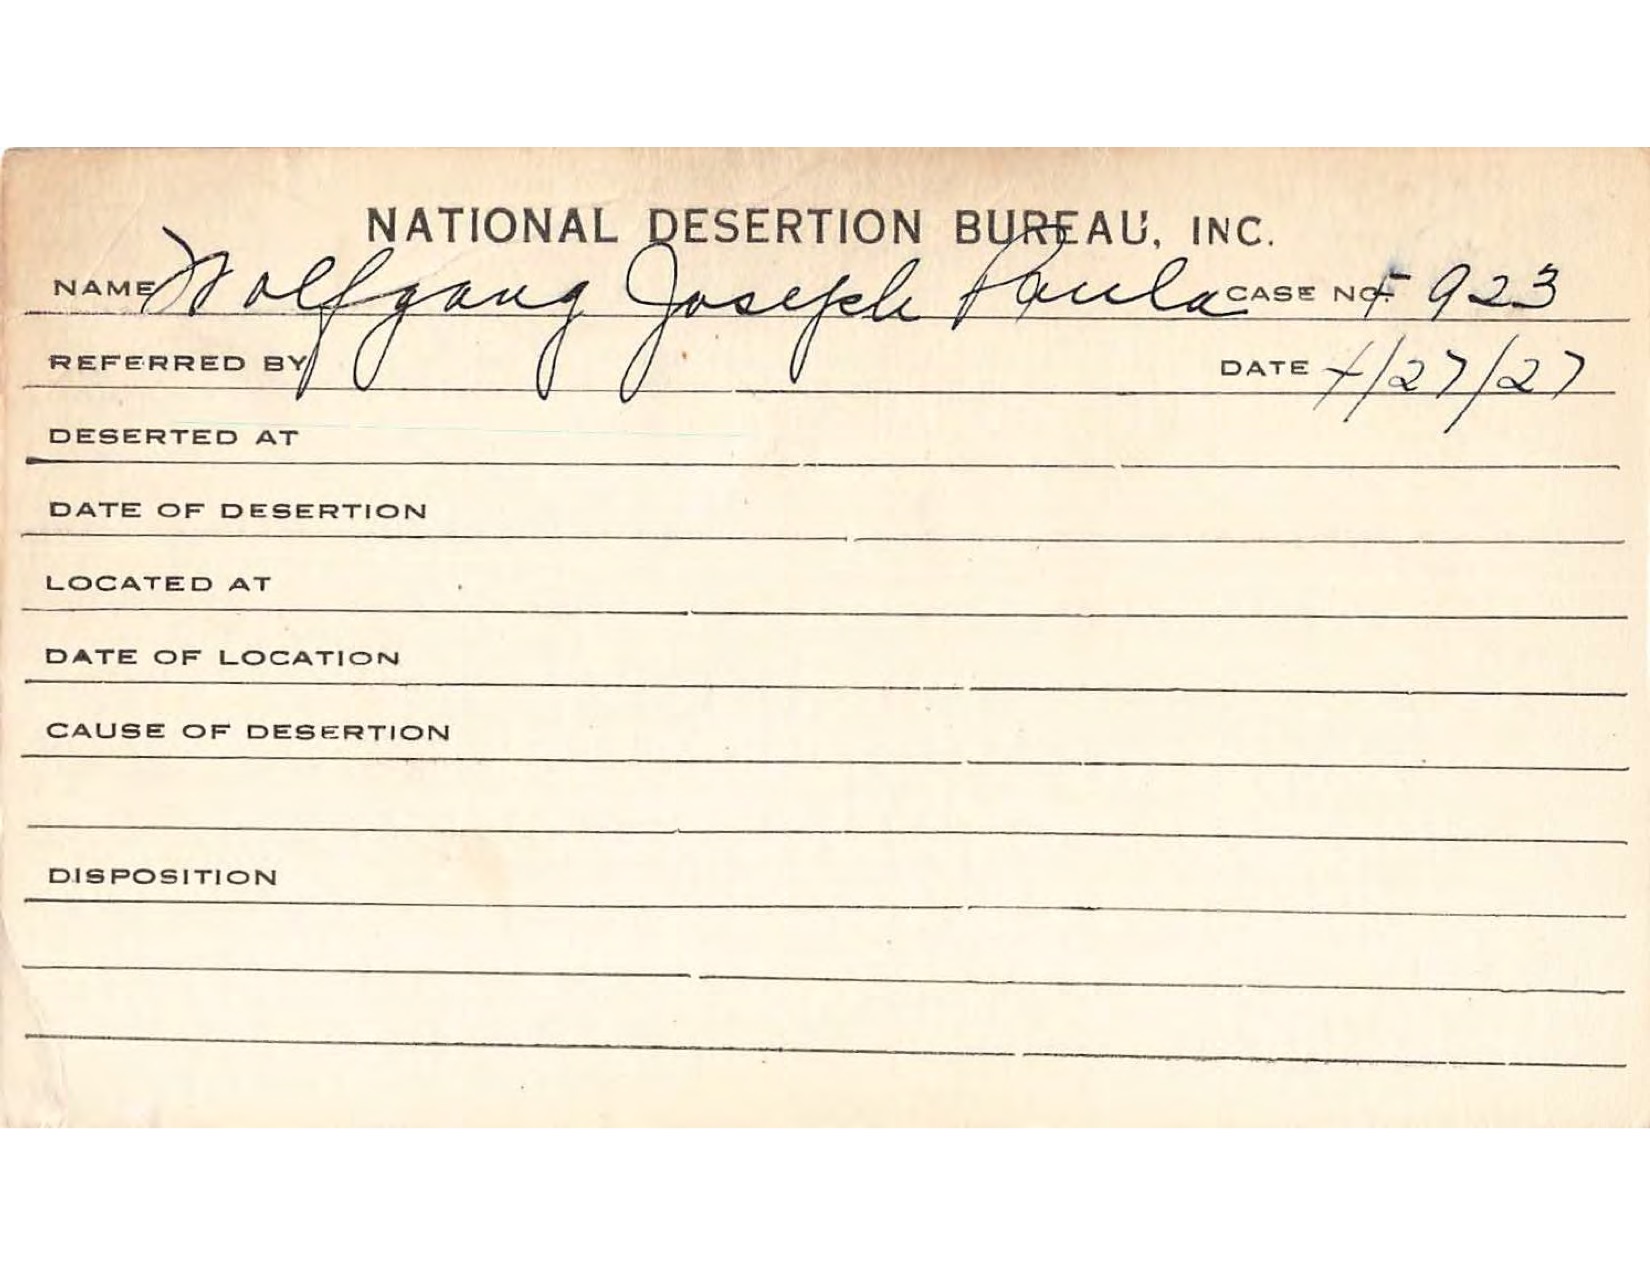 NATIONAL DESERTION BUREAU, INC.
NAME Wolfgang Joseph Paula CASE NO. F 923
REFERRED BY DATE 4/27/27
DESERTED AT
DATE OF DESERTION
LOCATED AT
DATE OF LOCATION
CAUSE OF DESERTION
DISPOSITION